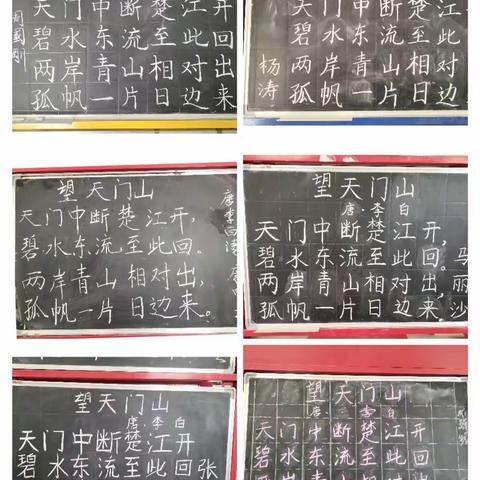 天门中断楚江开
碧水东流至此回
两岸青山相对出
孤帆一片日边来
天门中断楚江
碧水东流至此
两岸青山相对
孤帆一片日边
杨涛
望天门山
天门中断楚江开，
碧水东流至此回。
两岸青山相对出，
孤帆一片日边来。
望天门山
唐·李白
天门中断楚江开，
碧水东流至此回。
两岸青山相对出，
孤帆一片日边来。
马丽沙
望天门山
唐·李白
天门中断楚江开
碧水东流至此回
张
望天门山
唐·李白
天门中断楚江开
碧水东流至此回